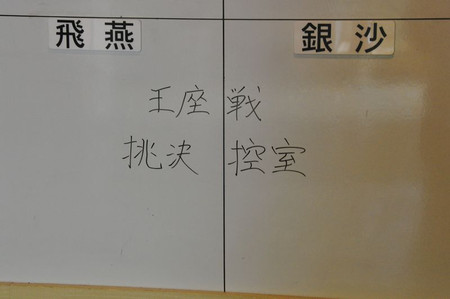 飛燕 銀沙
王座戦
挑決 控室